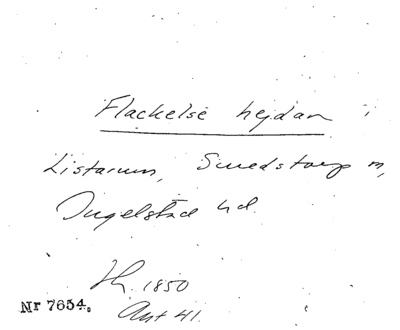 Flackelse hejdan i
Listarum, Smedstorp sn,
Ingelstad hd.
1850
Nr 7654.
Ant 41.